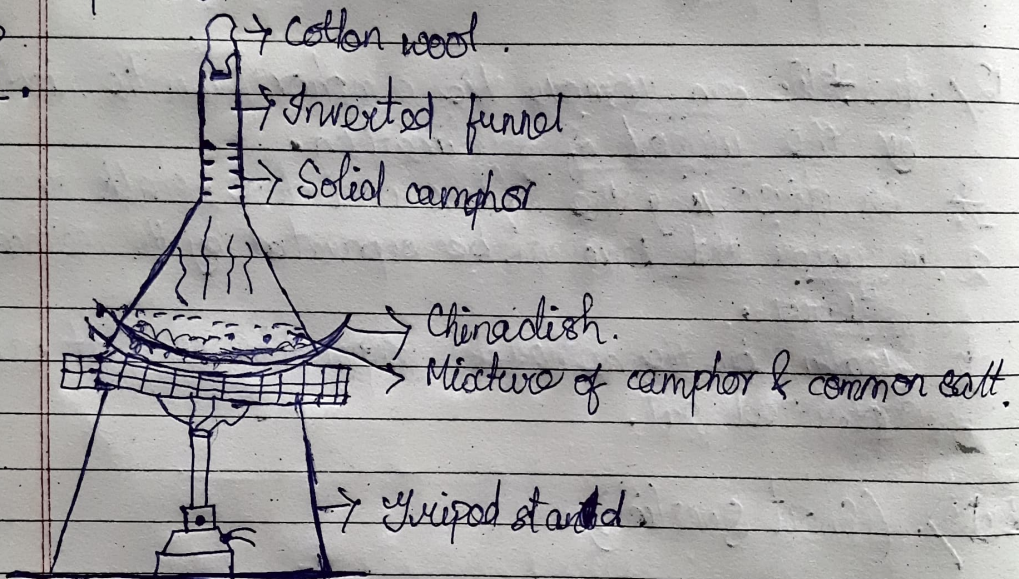 Cotton wool.
Inverted funnel
Solid camphor
Chinadish.
Mixture of camphor & common salt.
Tripod stand.